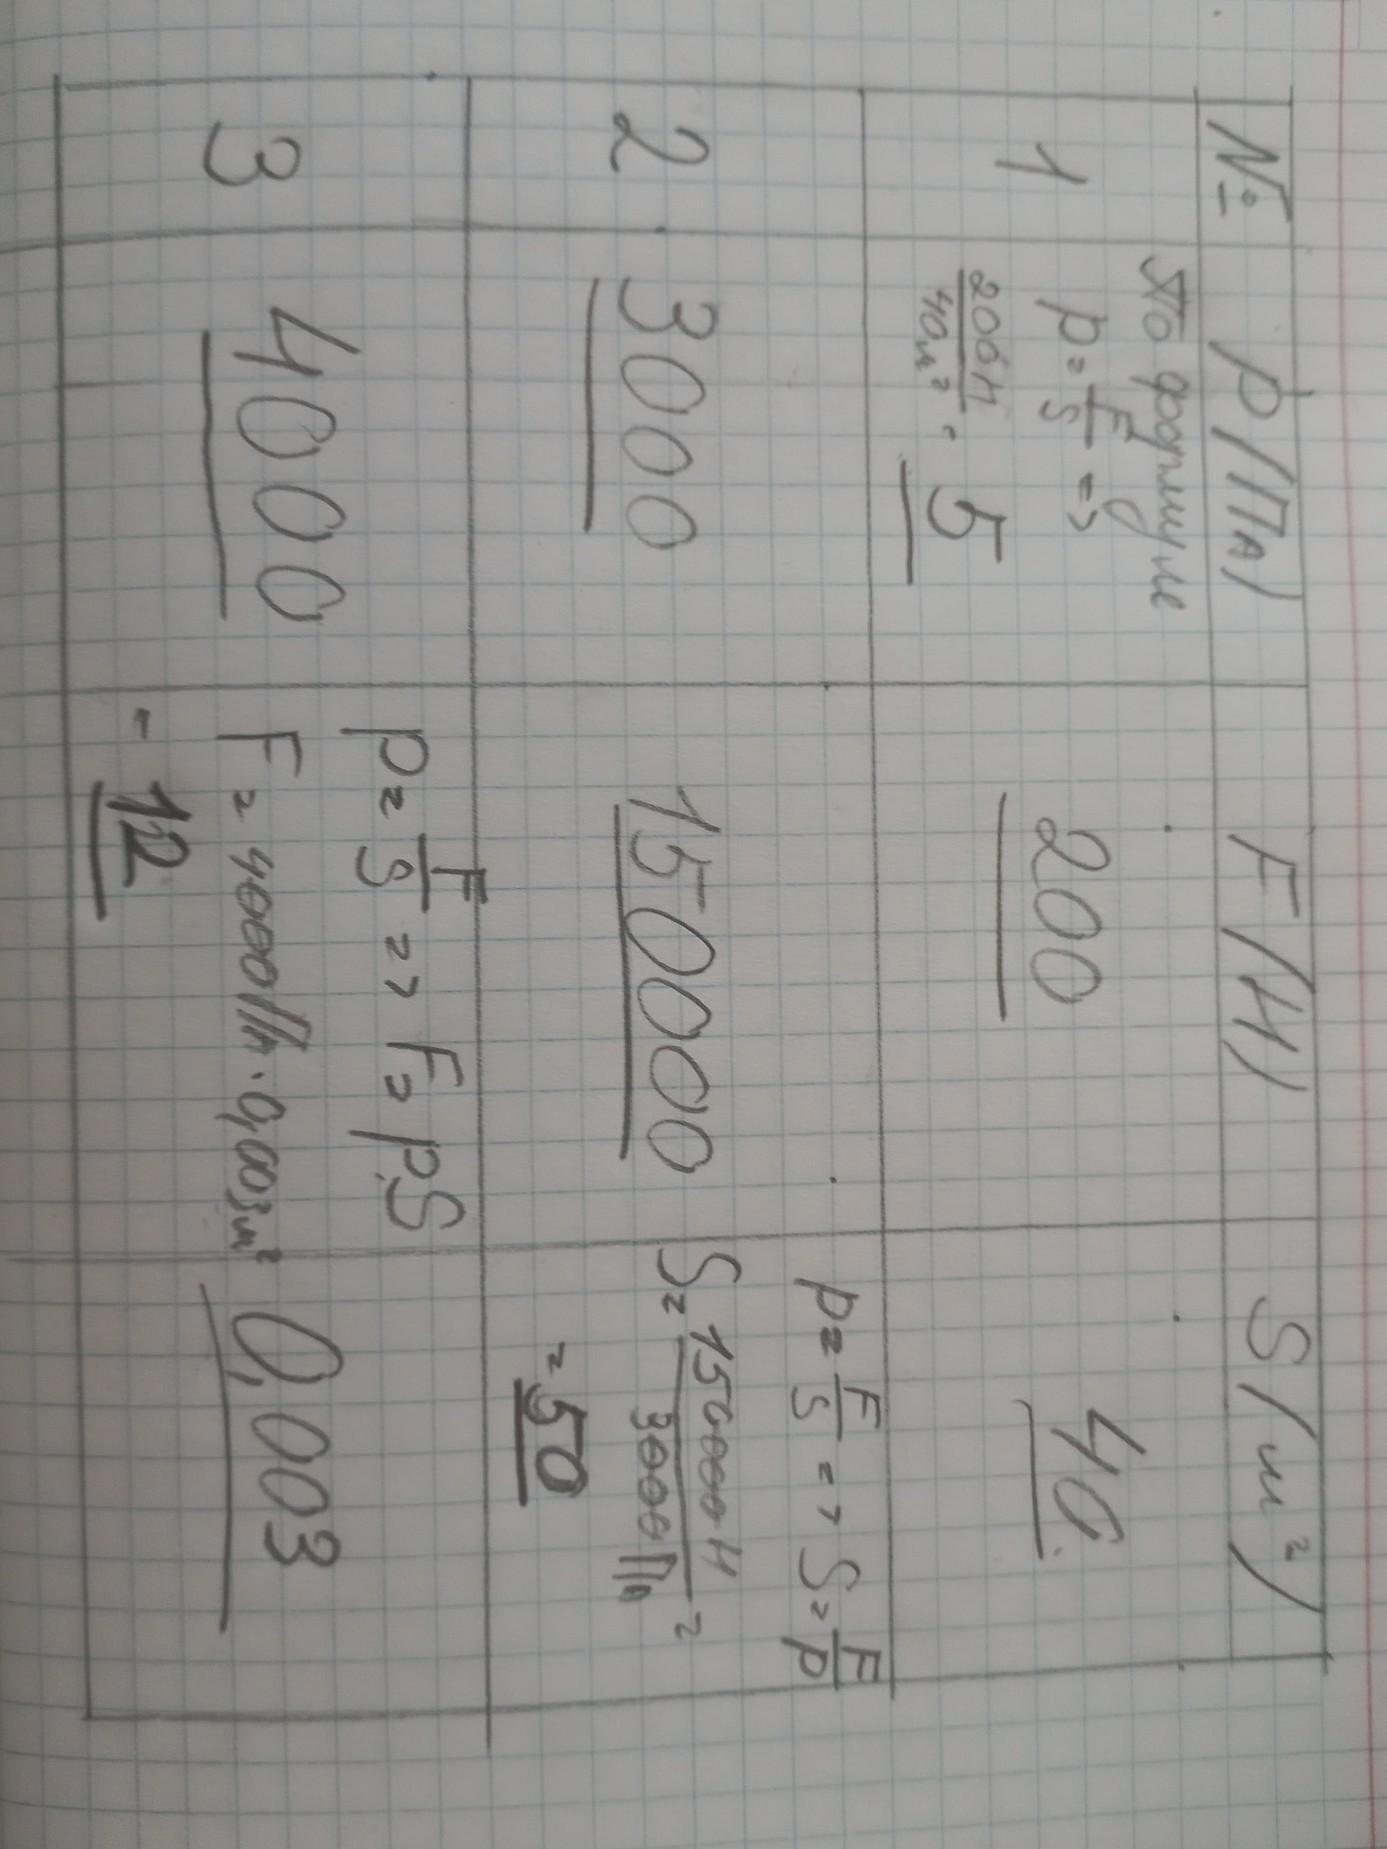 № P(Па) F(Н) S(м²)
1
По формуле
p = F/S =>
200Н/40м² = 5
200
40
2
3000
150000
p = F/S => S = F/p
S = 150000Н/3000Па =
= 50
3
4000
p = F/S => F = pS
F = 4000Па · 0,003м²
= 12
0,003